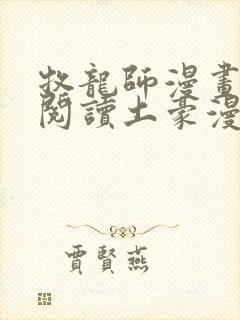 牧龍師漫畫
閱讀土豪漫
賈賢燕